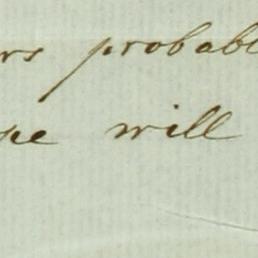 rs probabl
pe will